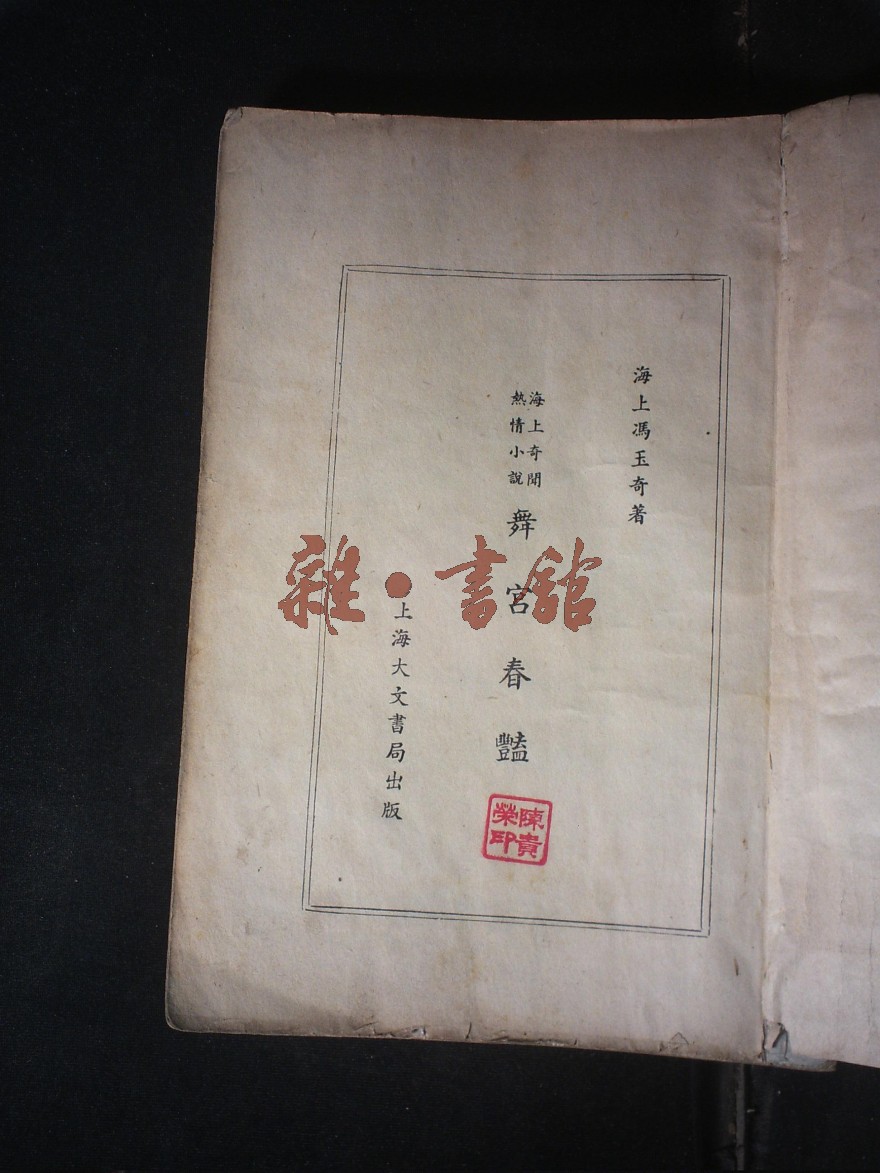 海上馮玉奇著
海上奇聞
熱情小說
舞宮春豔
陳貴
榮印
上海大文書局出版
雜·書舘